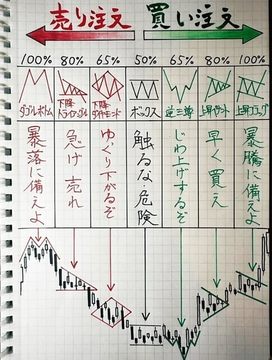 売り注文 買い注文
100% 80% 65% 50% 65% 80% 100%
ダブルボトム 下降トライアングル 下降ダイヤモンド ボックス 逆三尊 上昇ペナント 上昇フラッグ
暴落に備えよ
急げ売れ
ゆっくり下がるぞ
触るな危険
じわ上げするぞ
早く買え
暴騰に備えよ